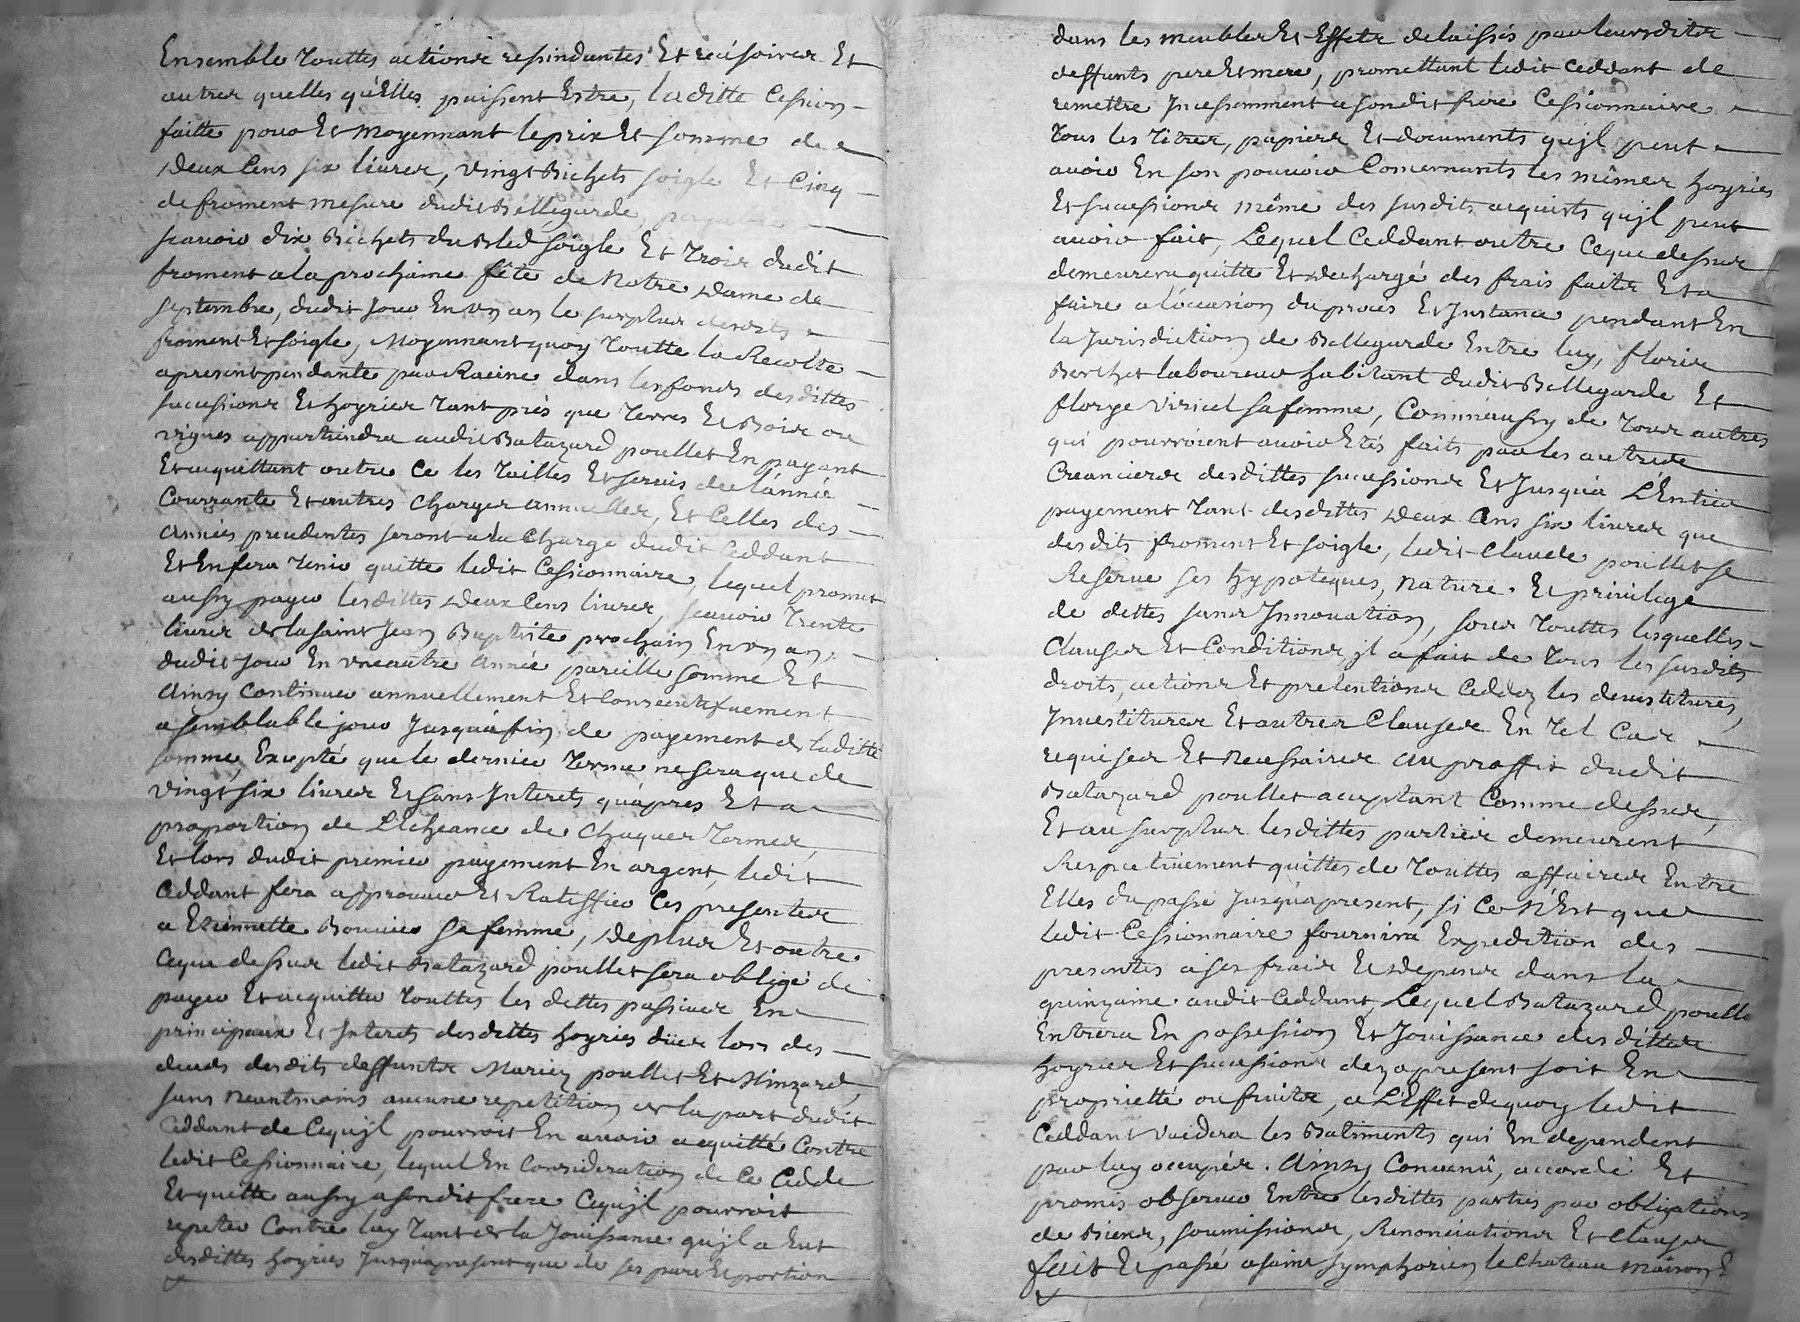 Ensemble Touttes actions rescindantes Et rescisoires Et
autres quelles qu'Elles puissent Estre, laditte Cession
faitte pour Et moyennant le prix Et somme de
deux Cens six livres, vingt Bichets soigle Et Cinq
de froment mesure dudit Bellegarde, payables
scavoir dix Bichets du Bled soigle Et Trois dudit
froment a la prochaine fête de Notre Dame de
septembre, dudit jour En un an le surplus desdits
froment Et soigle, Moyennant quoy Toutte la Recolte
apresent pendante par Racine dans les fonds desdittes
successions Et hoyries Tant prés que Terres Et Bois ou
vignes appartiendra audit Batazard poullet En payant
Et acquittant outre Ce les Tailles Et servis de l'année
Courrante Et autres Charges annuelles, Et Celles des
années precedentes seront a la Charge dudit Ceddant
Et En fera Tenir quitte ledit Cessionnaire, lequel promet
aussy payer lesdittes deux Cens livres, scavoir Trente
livres de la saint Jean Baptiste prochain En un an,
dudit jour En une autre année pareille somme Et
Ainsy Continuer annuellement Et Consecutivement
a semblable jour Jusqu'a fin de payement de laditte
somme, Excepté que le dernier Terme ne sera que de
vingt six livres Et sans Interets qu'apres Et a
proportion de L'Echeance de Chaques Termes,
Et lors dudit premier payement En argent, ledit
Ceddant fera approuver Et Ratiffier Ces presentes
a Etiennette Bouvier sa femme, De plus Et outre
Ceque dessus ledit Batazard poullet sera obligé de
payer Et acquitter Touttes les dettes passives En
principaux Et Interets desdittes hoyries dües lors des
deces desdits deffunts Mariez poullet Et Minzard,
sans neantmoins aucune repetition de la part dudit
Ceddant de Cequ'jl pourroit En avoir acquitté Contre
ledit Cessionnaire, lequel En Consideration de Ce Cedde
Et quitte aussy a sondit frere Cequ'jl pourroit
repeter Contre luy Tant de la Jouissance qu'jl a Eut
desdittes hoyries Jusqu'apresent que de ses part Et portion
dans les meubles Et Effets delaissés par leursdits
deffunts pere Et mere, promettant ledit Ceddant de
remettre Incessemment a sondit frere Cessionnaire
Tous les Titres, papiers Et documents qu'jl peut
avoir En son pouvoir Concernants les mêmes hoyries
Et successions même des susdits acquists qu'jl peut
avoir fait, Lequel Ceddant outre Ceque dessus
demeurera quitte Et dechargé des frais faits Et a
faire a l'occasion du procés Et Instance pendant En
la Jurisdiction de Bellegarde Entre luy, florie
Berthet laboureur habitant dudit Bellegarde Et
florye viricel sa femme, Comm'aussy de Tous autres
qui pourroient avoir Etés faits par les autres
Creanciers desdittes successions Et Jusqu'a L'Entier
payement Tant desdittes Deux Cens six livres que
desdits froment Et soigle, ledit Claude poullet se
Reserve ses hypoteques, nature Et privilege
de dettes sans Innovation, sous Touttes lesquelles
Clauses Et Conditions jl a fait de Tous les susdits
droits, actions Et pretentions Ceddez les devestitures,
Investitures Et autres Clauses En Tel Cas
requises Et necessaires au proffit dudit
Batazard poullet acceptant Comme dessus,
Et au surplus lesdittes parties demeurent
Respectivement quittes de Touttes affaires Entre
Elles du passé Jusqu'apresent, si Ce N'Est que
ledit Cessionnaire fournira Expedition des
presentes a ses frais Et depens dans la
quinzaine audit Ceddant, Lequel Batazard poullet
Entrera En possession Et Jouissance desdittes
hoyries Et successions dez apresent soit En
proprietté ou fruits, a L'Effet dequoy ledit
Ceddant vuidera les Batiments qui En dependent
par luy occupés. Ainsy Convenu, accordé Et
promis observer Entre lesdittes parties par obligations
de Biens, soumissions, Renonciations Et Clauses
fait Et passé a saint symphorien le Chateau maison E